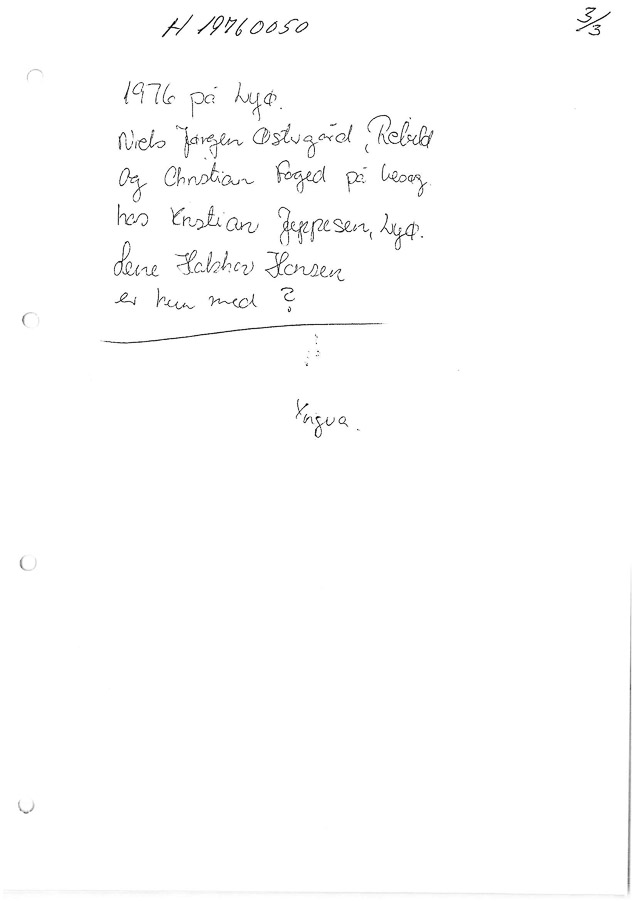 H 19760050 3/3
1976 på Lyø.
Niels Jørgen Østergård, Rebild
Og Christian Foged på besøg.
hos Kristian Jeppesen, Lyø.
Lene Halskov Hansen
er hun med ?
Yngva.